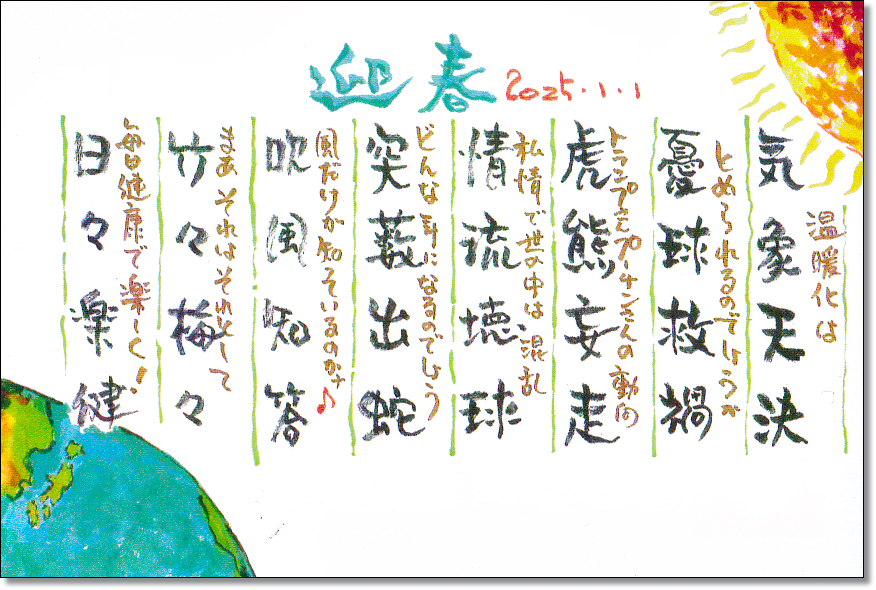 迎春 2025.1.1
温暖化は
気象天決
とめられるのでしょうか
憂球救禍
トランプさんプーチンさんの動向
虎熊妄走
私情で世の中は混乱
情流壊球
どんな年になるのでしょう
突藪出蛇
風だけが知っているのかナ♪
吹風知答
まあ それはそれとして
竹々梅々
毎日健康で楽しく!
日々楽健